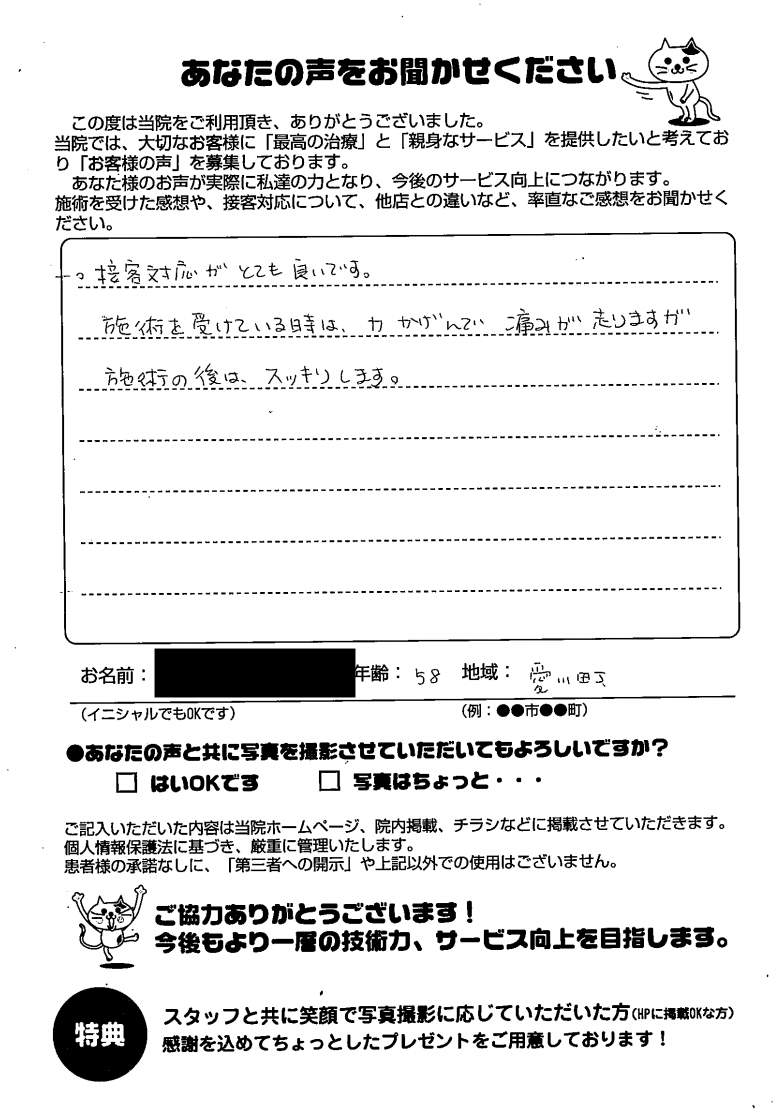 あなたの声をお聞かせください
この度は当院をご利用頂き、ありがとうございました。
当院では、大切なお客様に「最高の治療」と「親身なサービス」を提供したいと考えてお
り「お客様の声」を募集しております。
あなた様のお声が実際に私達の力となり、今後のサービス向上につながります。
施術を受けた感想や、接客対応について、他店との違いなど、率直なご感想をお聞かせく
ださい。
接客対応がとても良いです。
施術を受けている時は、力かげんで痛みが走りますが
施術の後は、スッキリします。
お名前： 年齢：58 地域：愛川町
（イニシャルでもOKです） （例：●●市●●町）
●あなたの声と共に写真を撮影させていただいてもよろしいですか？
□ はいOKです □ 写真はちょっと・・・
ご記入いただいた内容は当院ホームページ、院内掲載、チラシなどに掲載させていただきます。
個人情報保護法に基づき、厳重に管理いたします。
患者様の承諾なしに、「第三者への開示」や上記以外での使用はございません。
ご協力ありがとうございます！
今後もより一層の技術力、サービス向上を目指します。
特典
スタッフと共に笑顔で写真撮影に応じていただいた方(HPに掲載OKな方)
感謝を込めてちょっとしたプレゼントをご用意しております！